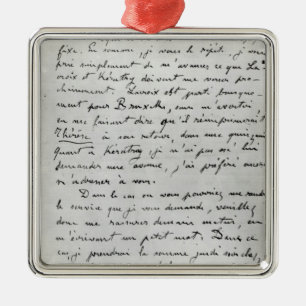 fixe. En somme, je vous le répète, je vous
prie simplement de m'avancer ce que La-
croix et Kératry doivent me verser pro-
chainement. Lacroix est parti brusque-
ment pour Bruxelles, sans m'avertir
en me faisant dire qu'il réimprimerait
Thérèse à son retour, dans une quinzaine
quant à Kératry, je n'ai pas osé lui
demander une avance, j'ai préféré encore
m'adresser à vous.
Dans le cas où vous pourriez me rendre
le service que je vous demande, veuillez
donc me rassurer demain matin, en
m'écrivant un petit mot. Dans ce
cas, je prendrai la somme jeudi soir chez